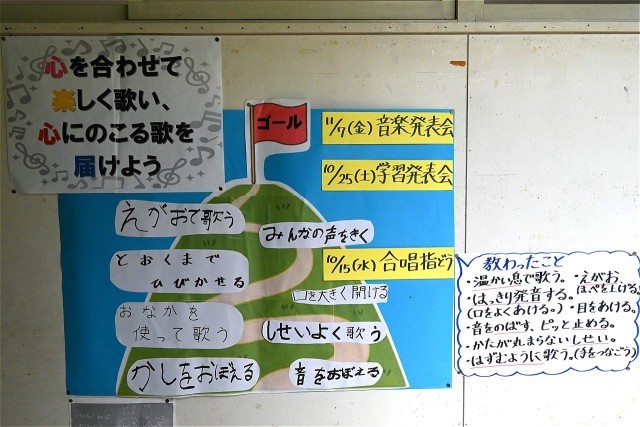 心を合わせて
楽しく歌い、
心にのこる歌を
届けよう
ゴール
11/7(金)音楽発表会
10/25(土)学習発表会
10/15(水)合唱指どう
えがおで歌う
みんなの声をきく
とおくまで
ひびかせる
口を大きく開ける
おなかを
使って歌う
しせいよく歌う
かしをおぼえる
音をおぼえる
教わったこと
・温かい息で歌う。
・えがお
ほぺを上げる。
・はっきり発音する。
(口をよくあける。)
・目をあける。
・音をのばす、ピッと止める。
・かたが丸まらないしせい。
・はずむように歌う。(手をつなごう)